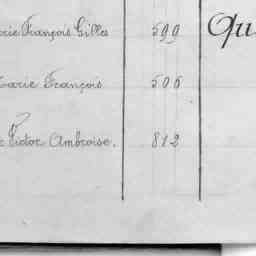 rie François Gilles 599 Qu
Marie François 506
Victor Ambroise. 812